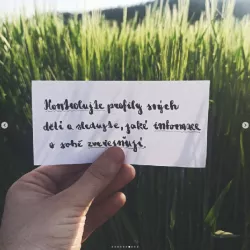 Kontrolujte profily svých
detí a sledujte, jaké informace
o sobě zveřejňují.